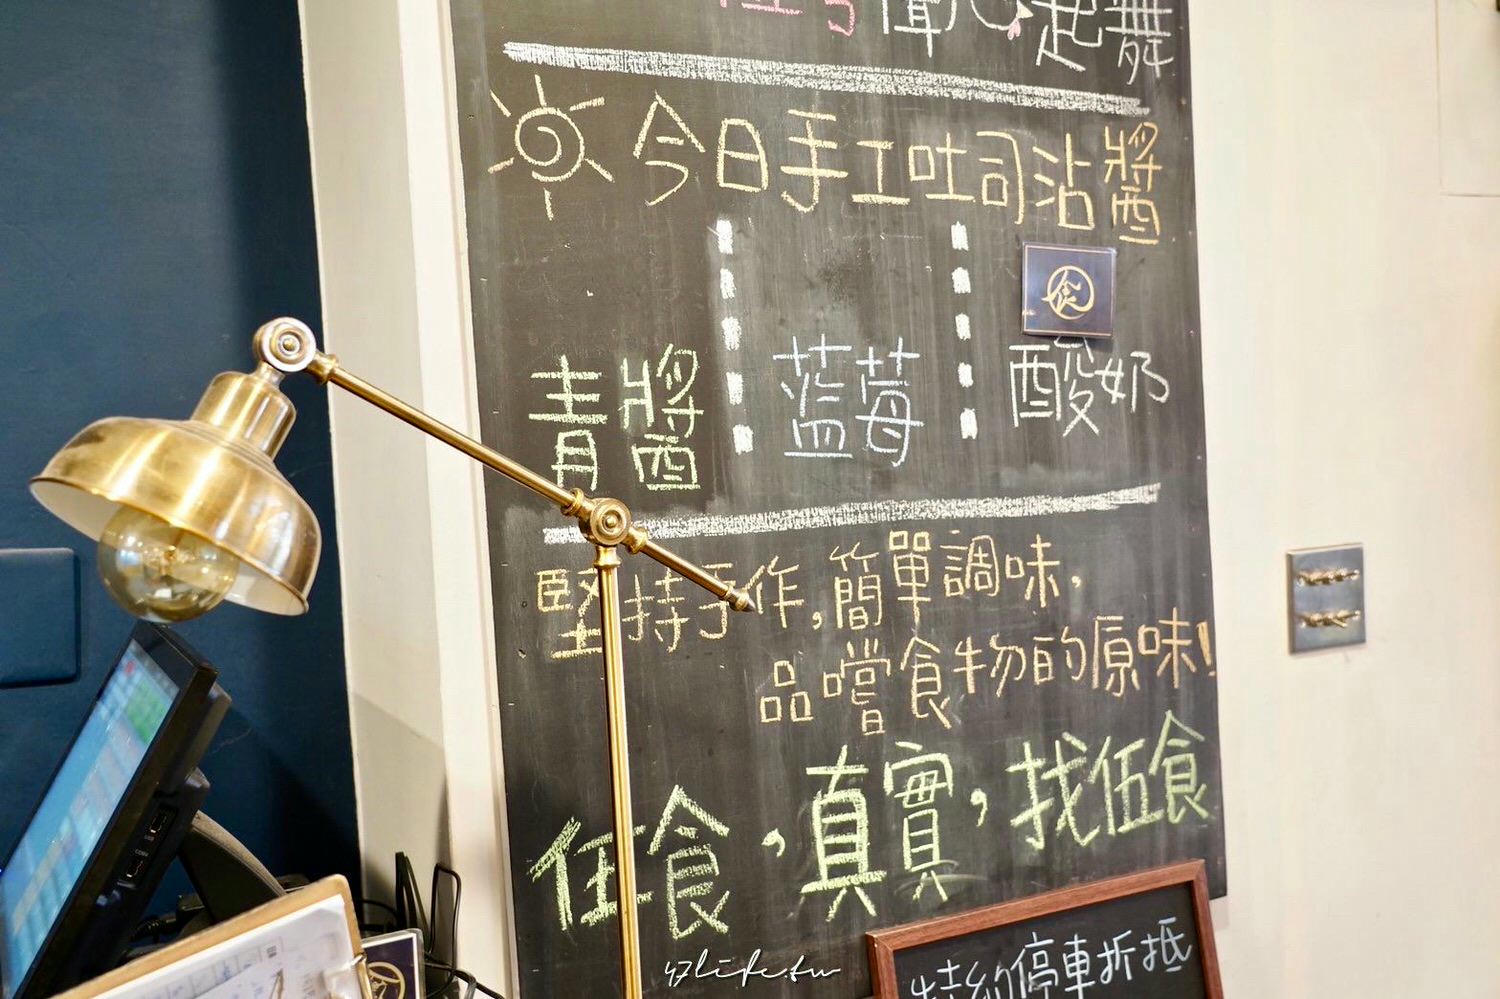 聞心起舞
今日手工吐司沾醬
青醬 藍莓 酸奶
食
堅持手作,簡單調味,
品嚐食物的原味!
伍食,真實,找伍食
特約停車折抵
47life.tw